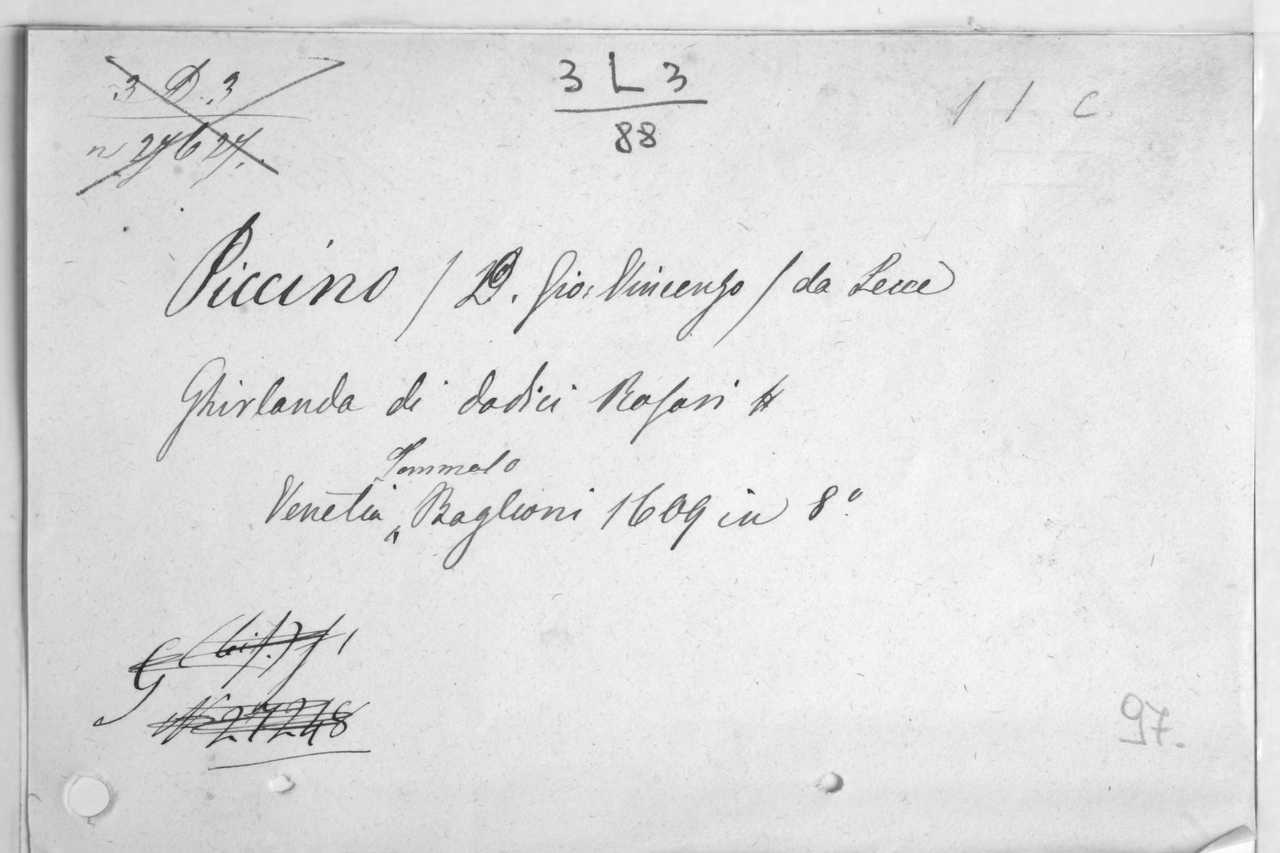 3 D. 3
n 27627.
3 L 3
88
11 c.
Piccino / D. Gio: Vincenzo / da Lecce
Ghirlanda di dodici Rosari #
Tommaso
Venetia Baglioni 1609 in 8.º
G (bis.)
Nº 27248
97.